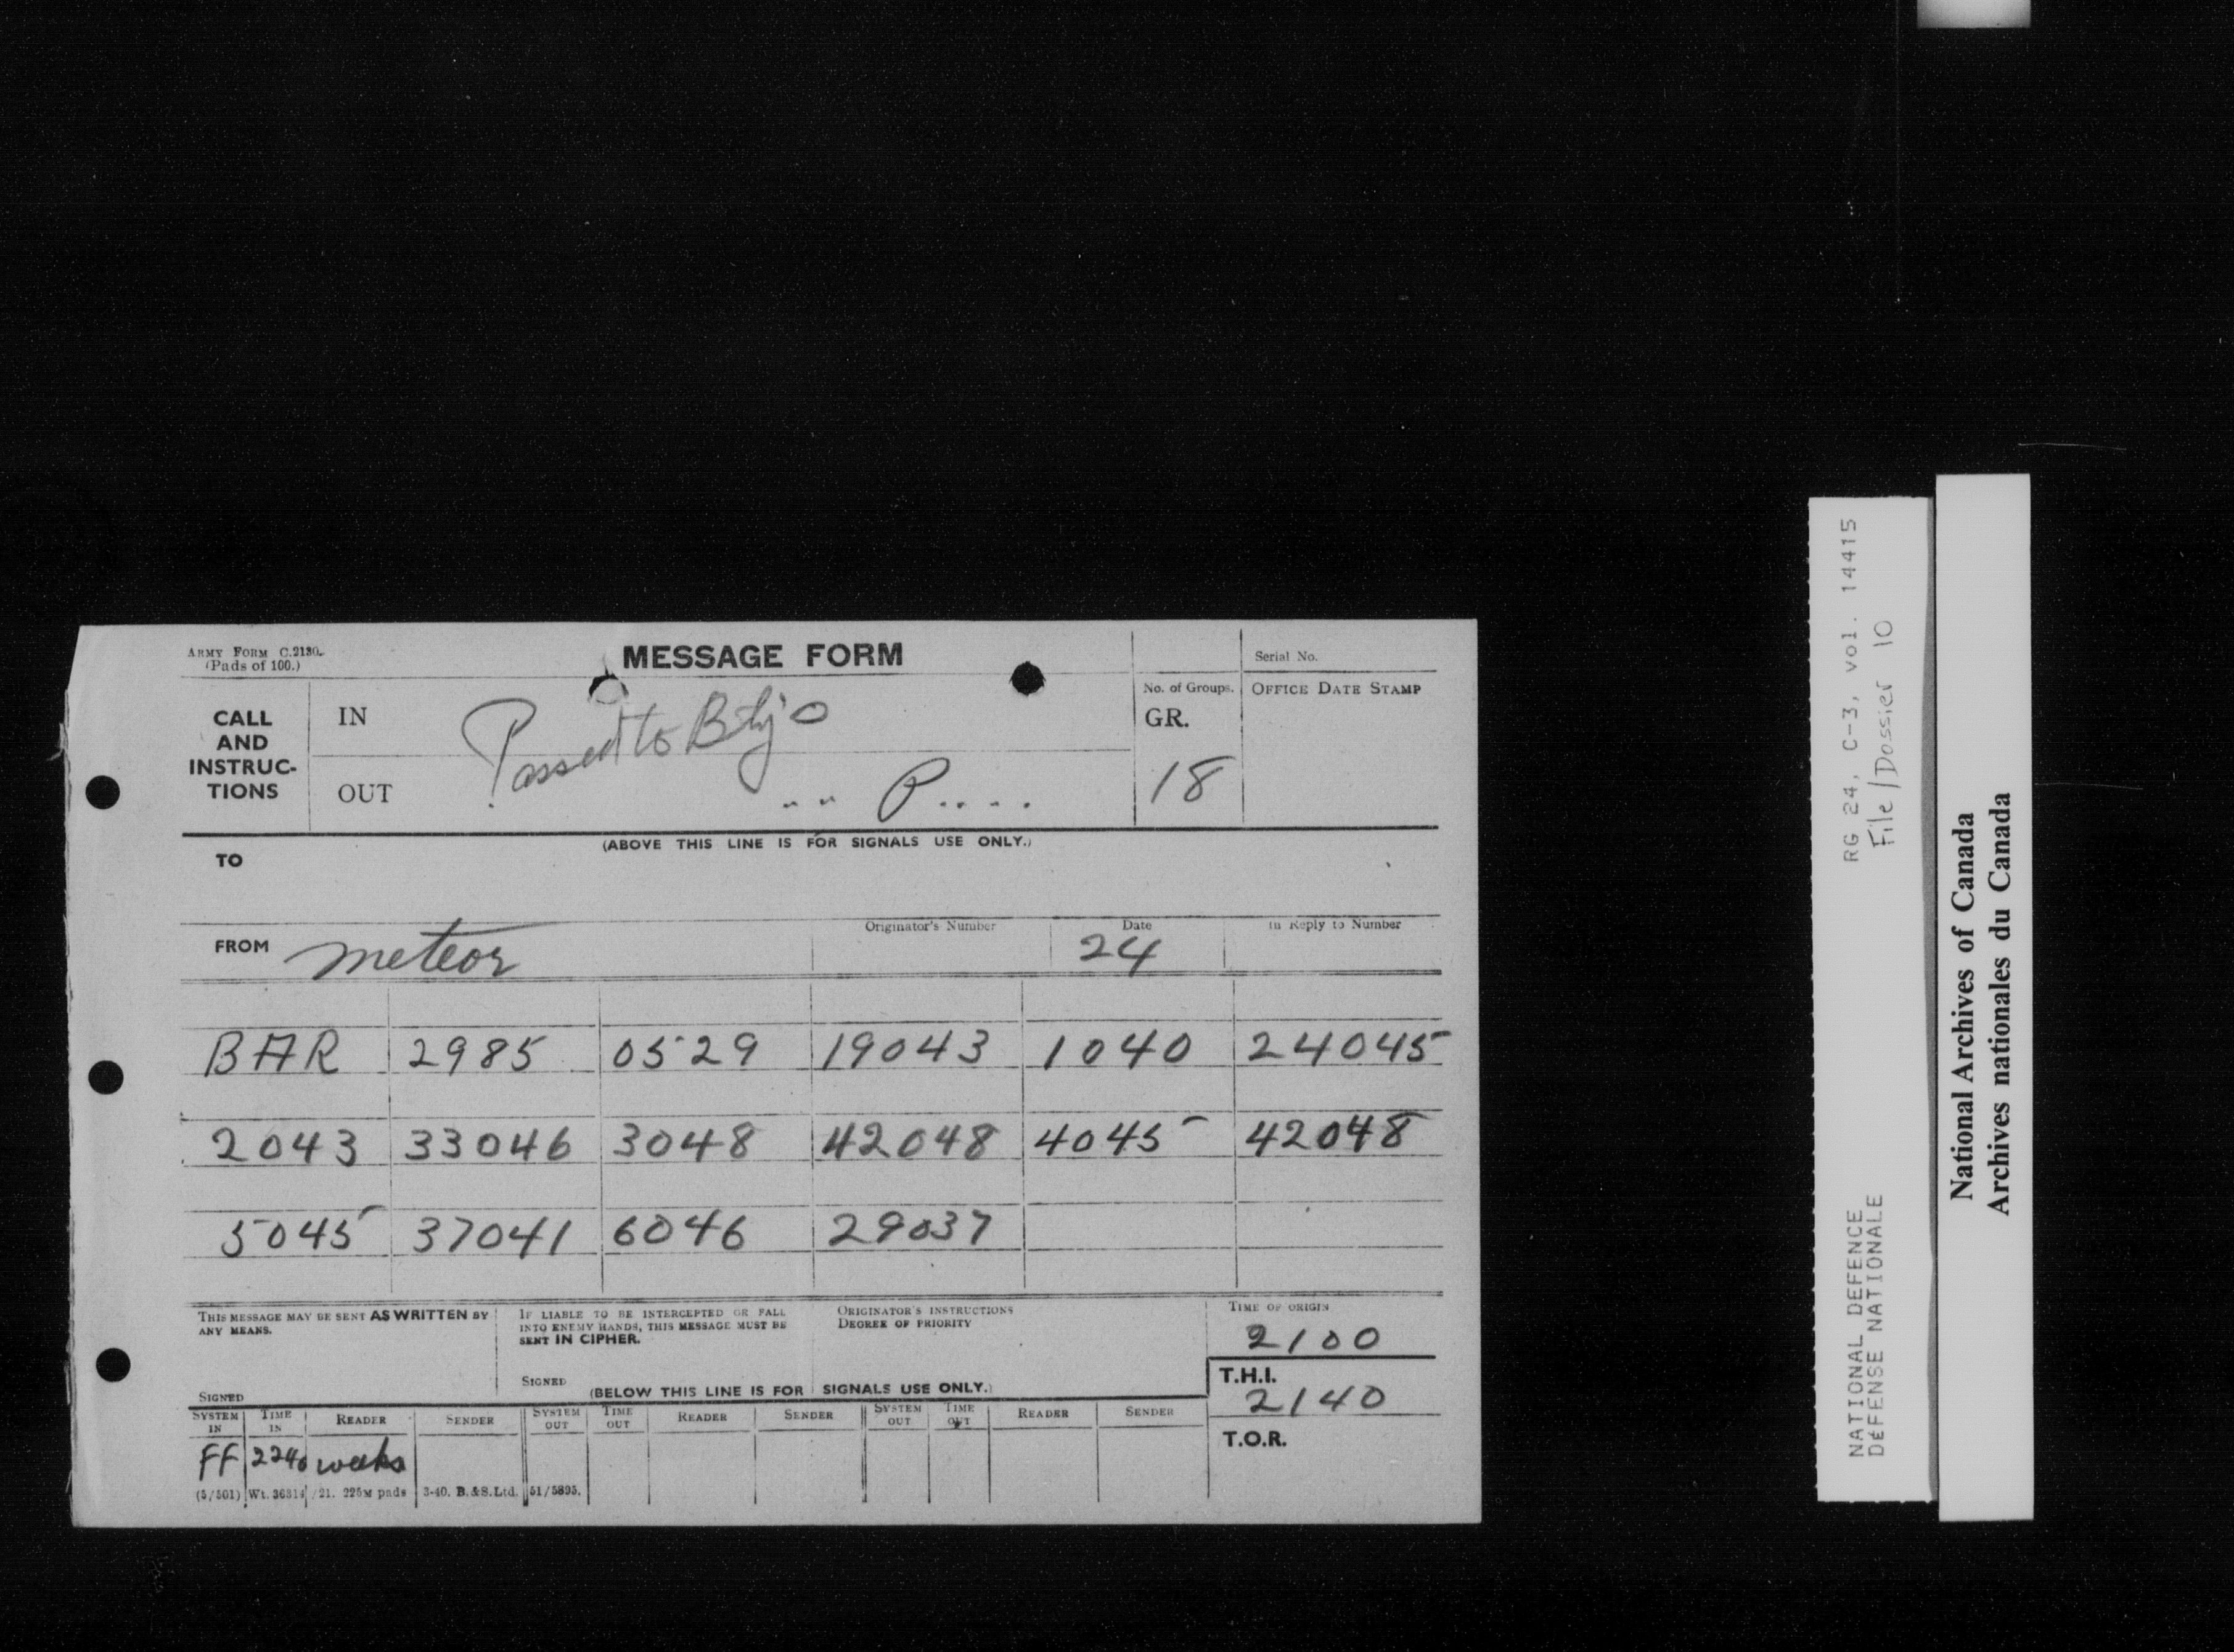 ARMY FORM C.2130.
(Pads of 100.)
MESSAGE FORM
Serial No.
CALL AND INSTRUC-TIONS
IN
OUT
Passed to
P
No. of Groups.
GR.
18
OFFICE DATE STAMP
(ABOVE THIS LINE IS FOR SIGNALS USE ONLY.)
TO
FROM meteor
Originator's Number
Date
24
In Reply to Number
BAR 2985 0529 19043 1040 24045
2043 33046 3048 42048 4045 42048
5045 37041 6046 29037
THIS MESSAGE MAY BE SENT AS WRITTEN BY
ANY MEANS.
SIGNED
IF LIABLE TO BE INTERCEPTED OR FALL
INTO ENEMY HANDS, THIS MESSAGE MUST BE
SENT IN CIPHER.
SIGNED
ORIGINATOR'S INSTRUCTIONS
DEGREE OF PRIORITY
TIME OF ORIGIN
2100
T.H.I.
2140
T.O.R.
(BELOW THIS LINE IS FOR SIGNALS USE ONLY.)
SYSTEM IN TIME IN READER SENDER SYSTEM OUT TIME OUT READER SENDER SYSTEM OUT TIME OUT READER SENDER
FF 2240 weeks
(5/501) Wt. 36314/21. 225M pads 3-40. B.&S.Ltd. 51/5895.
RG 24, C-3, vol. 14415
File/Dossier 10
NATIONAL DEFENCE
DÉFENSE NATIONALE
National Archives of Canada
Archives nationales du Canada